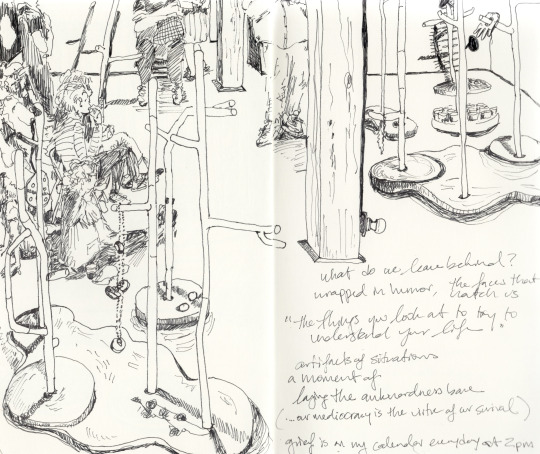 what do we leave behind?
wrapped in humor, the faces that
watch us
"the things you look at to try to
understand your life!"
artifacts of situations
a moment of
laying the awkwardness bare
(...our mediocracy is the virtue of our survival)
grief is in my calendar everyday at 2pm